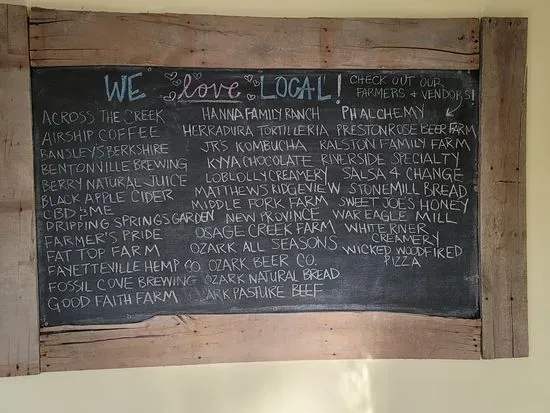 WE love LOCAL!
CHECK OUT OUR
FARMERS + VENDORS!
ACROSS THE CREEK
AIRSHIP COFFEE
BANSLEY'S BERKSHIRE
BENTONVILLE BREWING
BERRY NATURAL JUICE
BLACK APPLE CIDER
CBD ME
DRIPPING SPRINGS GARDEN
FARMER'S PRIDE
FAT TOP FARM
FAYETTEVILLE HEMP CO
FOSSIL COVE BREWING
GOOD FAITH FARM
HANNA FAMILY RANCH
HERRADURA TORTILLERIA
JR'S KOMBUCHA
KYYA CHOCOLATE
LOBLOLLY CREAMERY
MATTHEWS RIDGEVIEW
MIDDLE FORK FARM
NEW PROVINCE
OSAGE CREEK FARM
OZARK ALL SEASONS
OZARK BEER CO.
OZARK NATURAL BREAD
ARK PASTURE BEEF
PH ALCHEMY
PRESTON ROSE BEER FARM
RALSTON FAMILY FARM
RIVERSIDE SPECIALTY
SALSA 4 CHANGE
STONEMILL BREAD
SWEET JOE'S HONEY
WAR EAGLE MILL
WHITE RIVER
CREAMERY
WICKED WOODFIRED
PIZZA